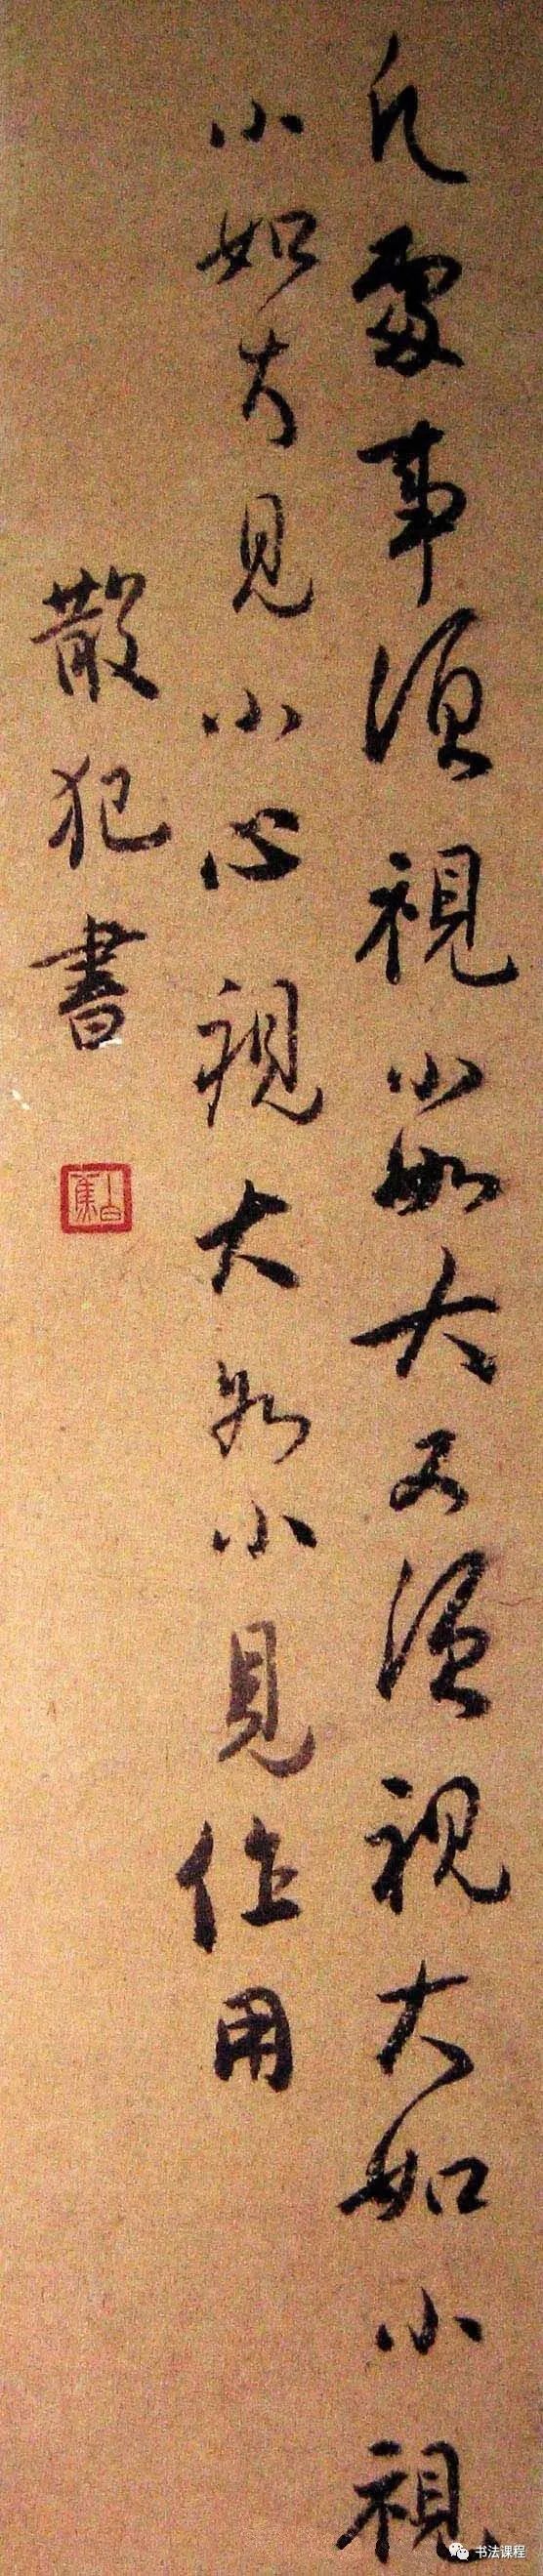 凡處事須視小如大又須視大如小視
小如大見小心視大如小見作用
散犯書
书法课程